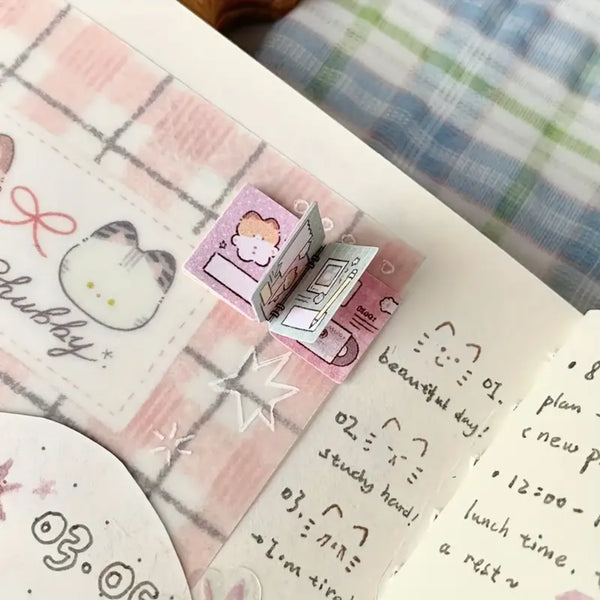 chubby
03.0
01.
beautiful day!
02.
study hard!
03.
→ I'm tire
• 8
plan
(new p
• 12:00 -
lunch time.
a rest~